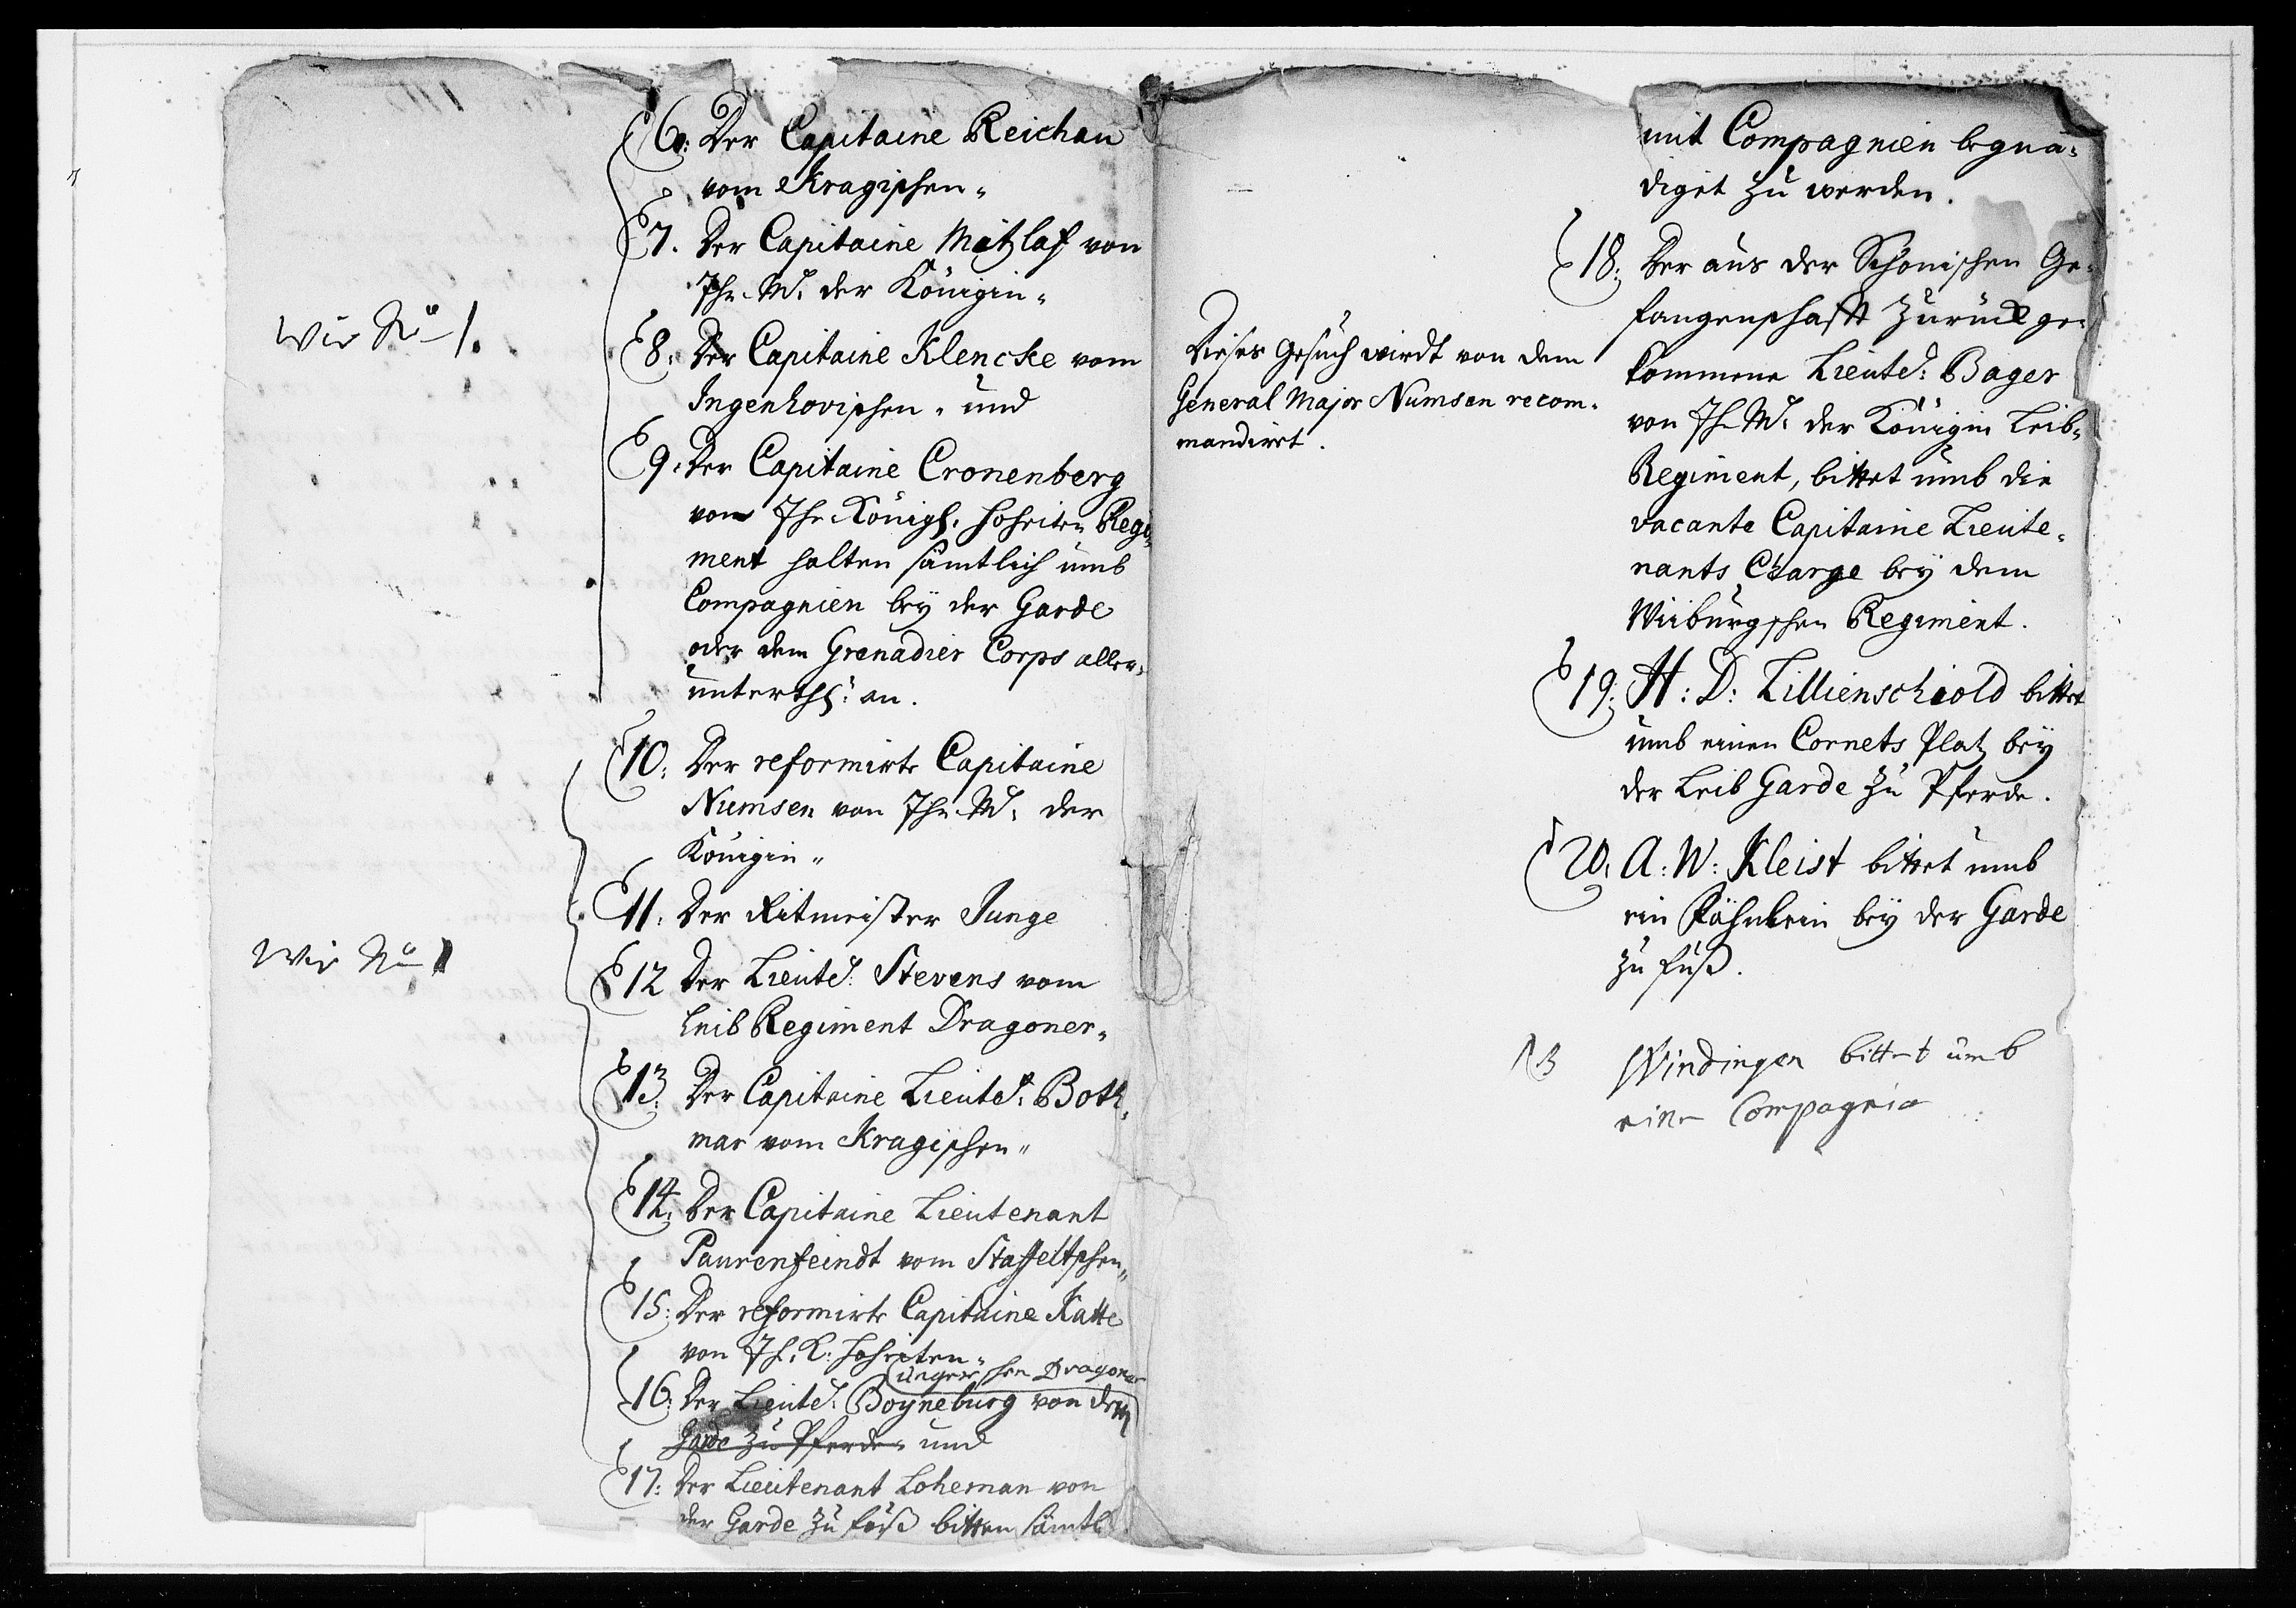 6. Der Capitaine Reichau
vom Kragischen„
7. Der Capitaine Matzlaf von
Ihr. M. der Königin„
wie No 1.
8. Der Capitaine Klencke vom
Ingenhovischen„ und
9. Der Capitaine Cronenberg
von Ihr Königl. Hoheiten Regi„
ment halten sämtlich umb
Compagnien bey der Garde
oder dem Grenadier Corps aller„
unterthl: an.
10. Der reformirte Capitaine
Numsen von Ihr. M. der
Königin„
11. Der Ritmeister Junge
wie No 1
12 Der Lieutd: Stevens vom
Leib Regiment Dragoner„
13. Der Capitaine Lieutd: Both„
mar vom Kragischen„
14. Der Capitaine Lieutenant
Paurenfeindt vom Staffeltschen„
15. Der reformirte Capitaine Katte
von Ih. K. Hoheiten„
schen Dragoner
16. Der Lieutd: Boyneburg von dem
Garde zu Pferde„ und
17. Der Lieutenant Loheman von
der Garde zu fuß bitten sämtl
mit Compagnien begnä„
diget zu werden.
18. Der aus der Schonischen Ge„
fangenschafft zurück ge„
kommene Lieutd: Bager
von Ih. M. der Königin Leib„
Regiment, bittet umb die
vacante Capitaine Lieute„
nants Charge bey dem
Wiburgschen Regiment.
Dieses Gesuch wirdt von dem
General Major Numsen recom„
mandirt.
19. H: D: Lillienschiold bittet
umb einen Cornets Platz bey
der Leib Garde zu Pferde.
20. A: W: Kleist bittet umb
ein Fähnlein bey der Garde
zu fuß.
NB Windingen bittet umb
eine Compagnie